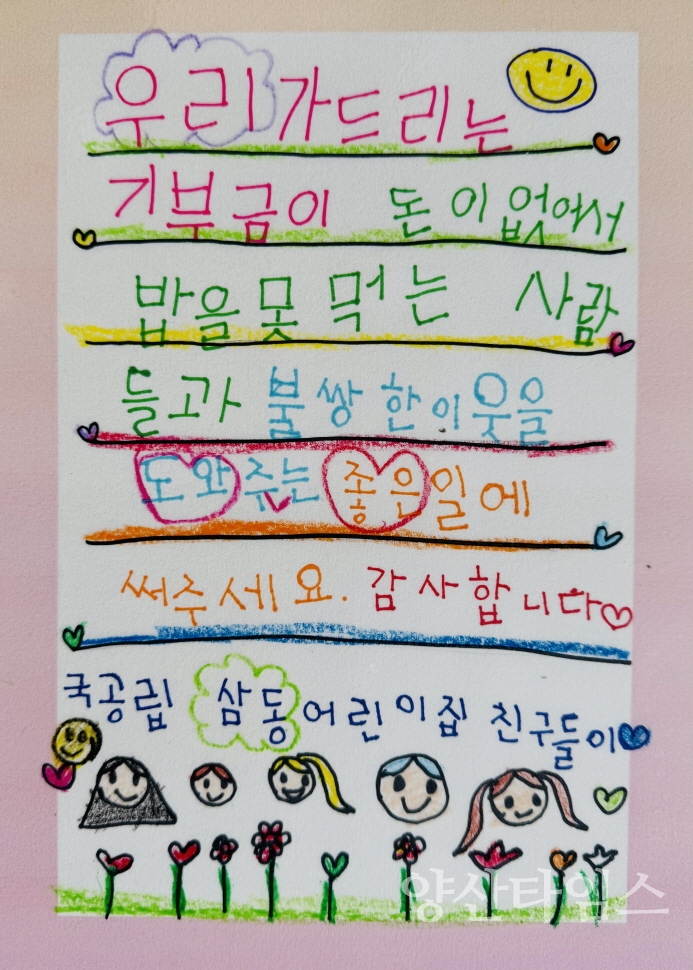 우리가드리는
기부금이 돈이없어서
밥을못먹는 사람
들과 불쌍한이웃을
도와주는 좋은일에
써주세요. 감사합니다
국공립 삼동어린이집 친구들이
양산타임스